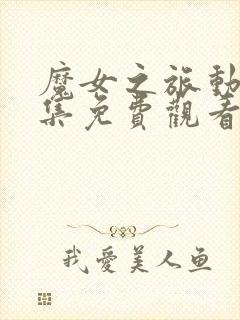 魔女之旅動
集免費觀看
我愛美人鱼